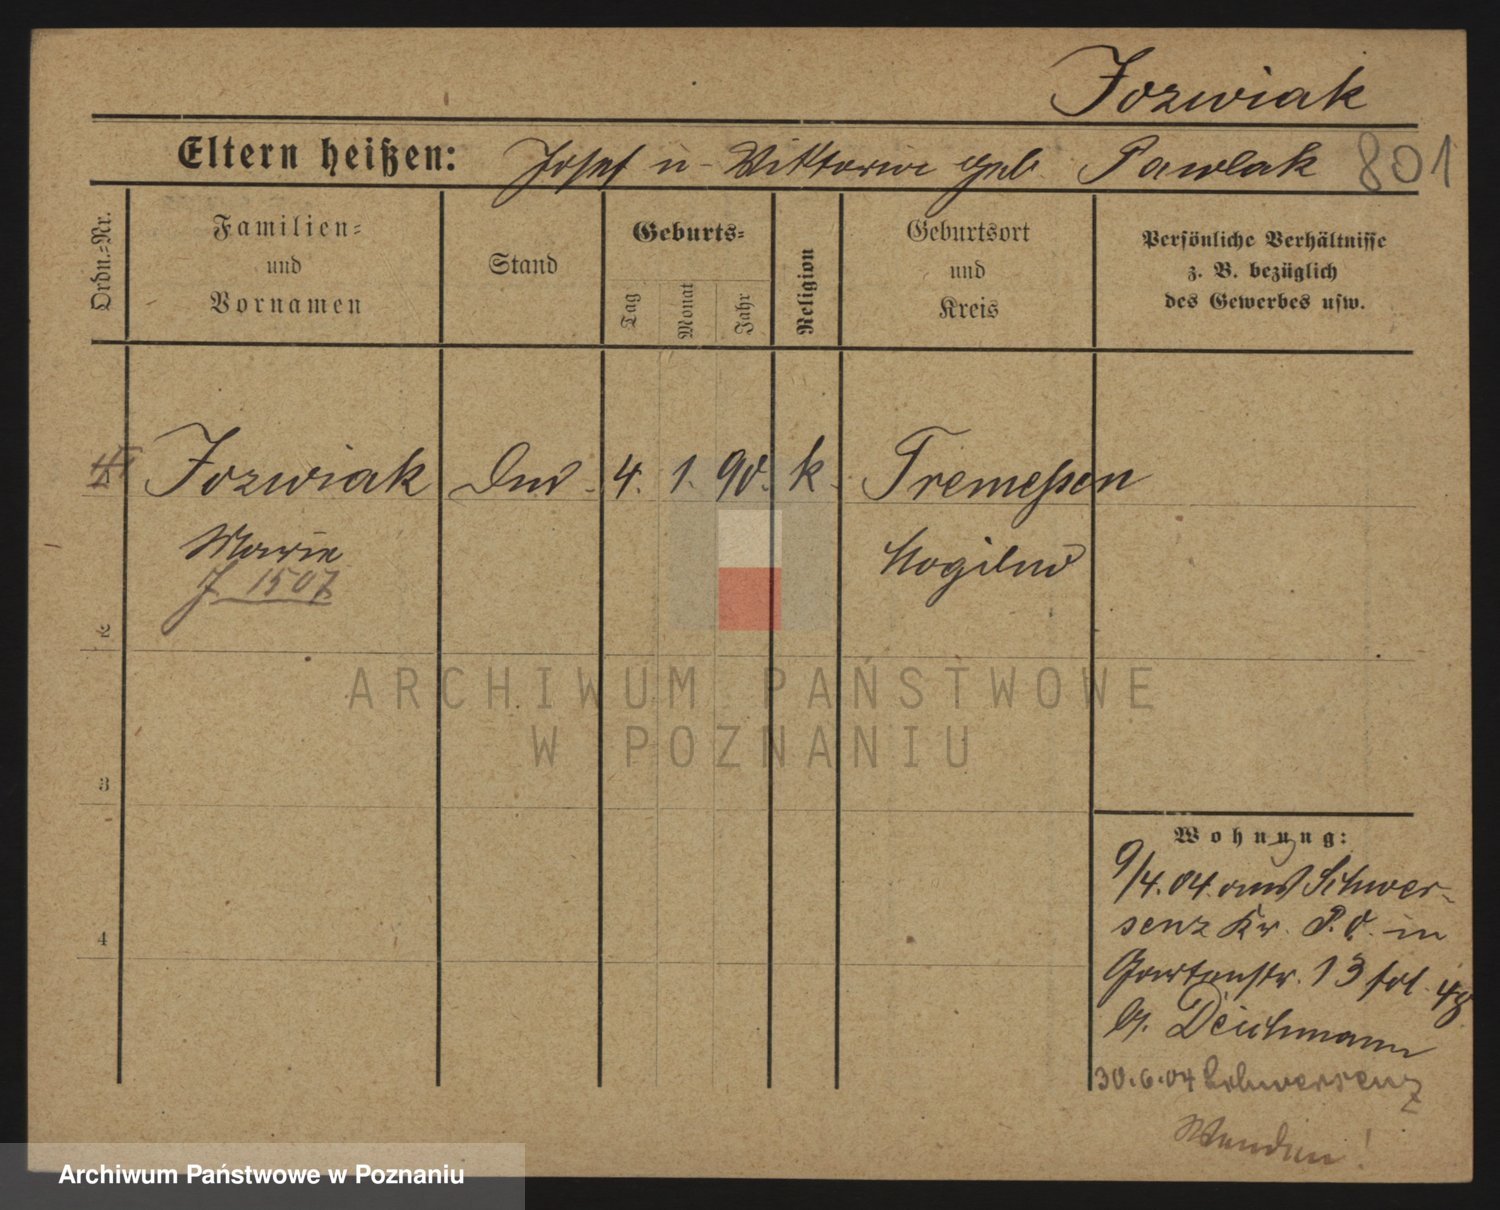 Jozwiak
Eltern heißen: Josef u Viktorie geb. Pawlak 801
Ordn.-Nr.
Familien-
und
Vornamen
Stand
Geburts-
Tag
Monat
Jahr
Religion
Geburtsort
und
Kreis
Persönliche Verhältnisse
z. B. bezüglich
des Gewerbes usw.
Jozwiak 4. 1. 90. k. Tremessen
Marie
Mogilno
J 1507
2
3
4
Wohnung:
9/4.04. aus Schwer-
senz Kr. P.O. in
Gartenstr. 13
b. Deichmann
30.6.04 Schwersenz
Wenden!
ARCHIWUM PAŃSTWOWE
W POZNANIU
Archiwum Państwowe w Poznaniu